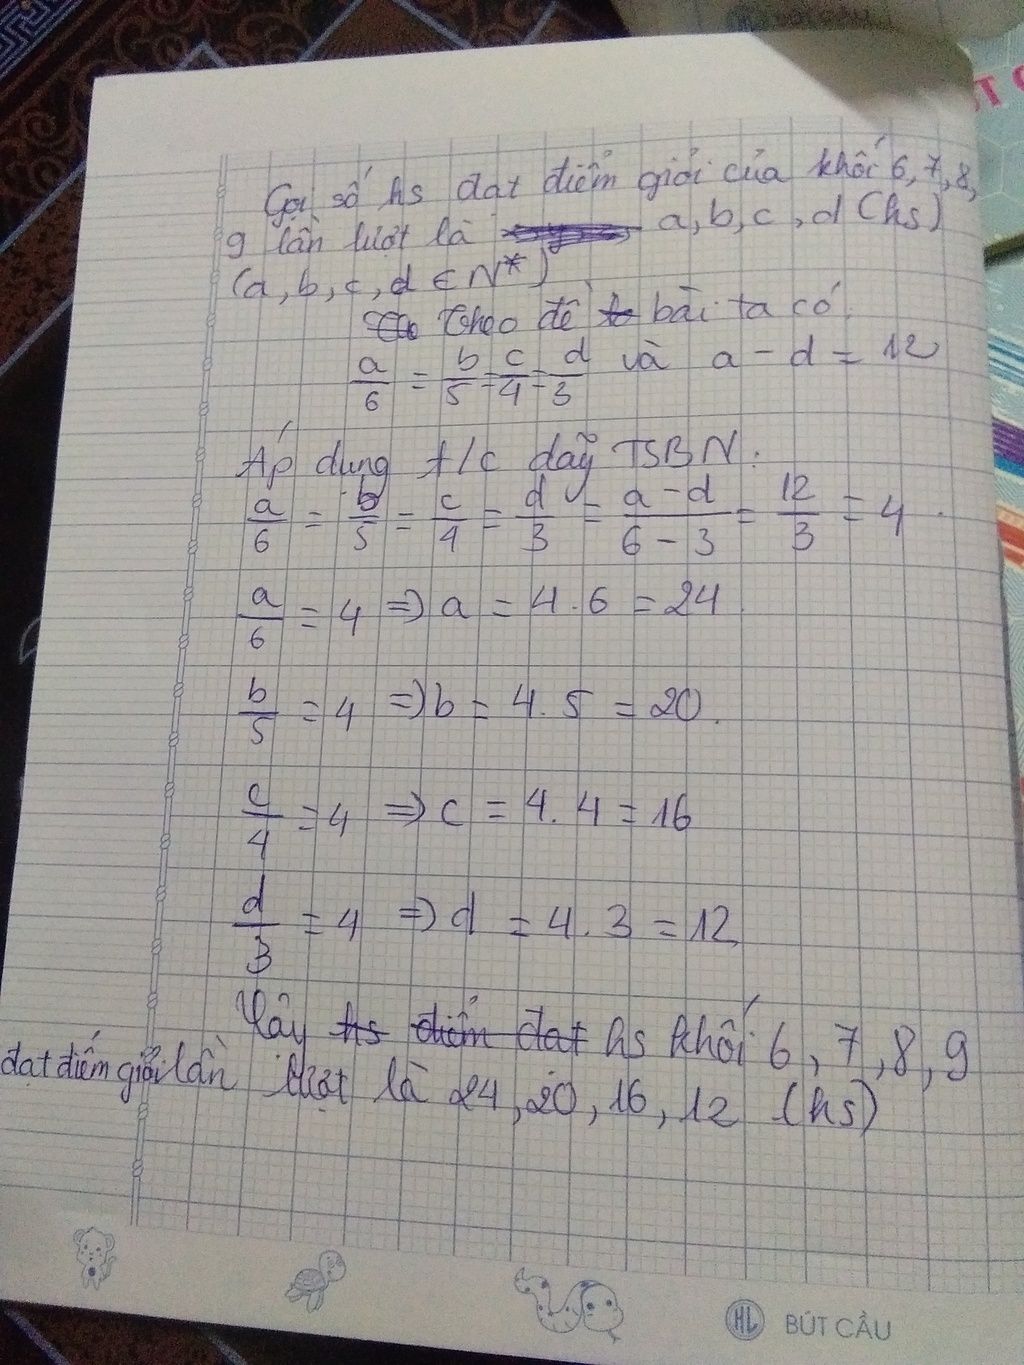 Gọi số hs đạt điểm giỏi của khối 6, 7, 8,
9 lần lượt là a, b, c, d (hs)
(a, b, c, d ∈ N*)
Theo đề bài ta có
a/6 = b/5 = c/4 = d/3 và a - d = 12
Áp dụng t/c dãy TSBN:
a/6 = b/5 = c/4 = d/3 = a - d/6 - 3 = 12/3 = 4.
a/6 = 4 => a = 4.6 = 24
b/5 = 4 => b = 4.5 = 20.
c/4 = 4 => c = 4.4 = 16
d/3 = 4 => d = 4.3 = 12
Vậy hs điểm đạt hs khối 6, 7, 8, 9
đạt điểm giỏi lần lượt là 24, 20, 16, 12 (hs)
HL BÚT CẦU